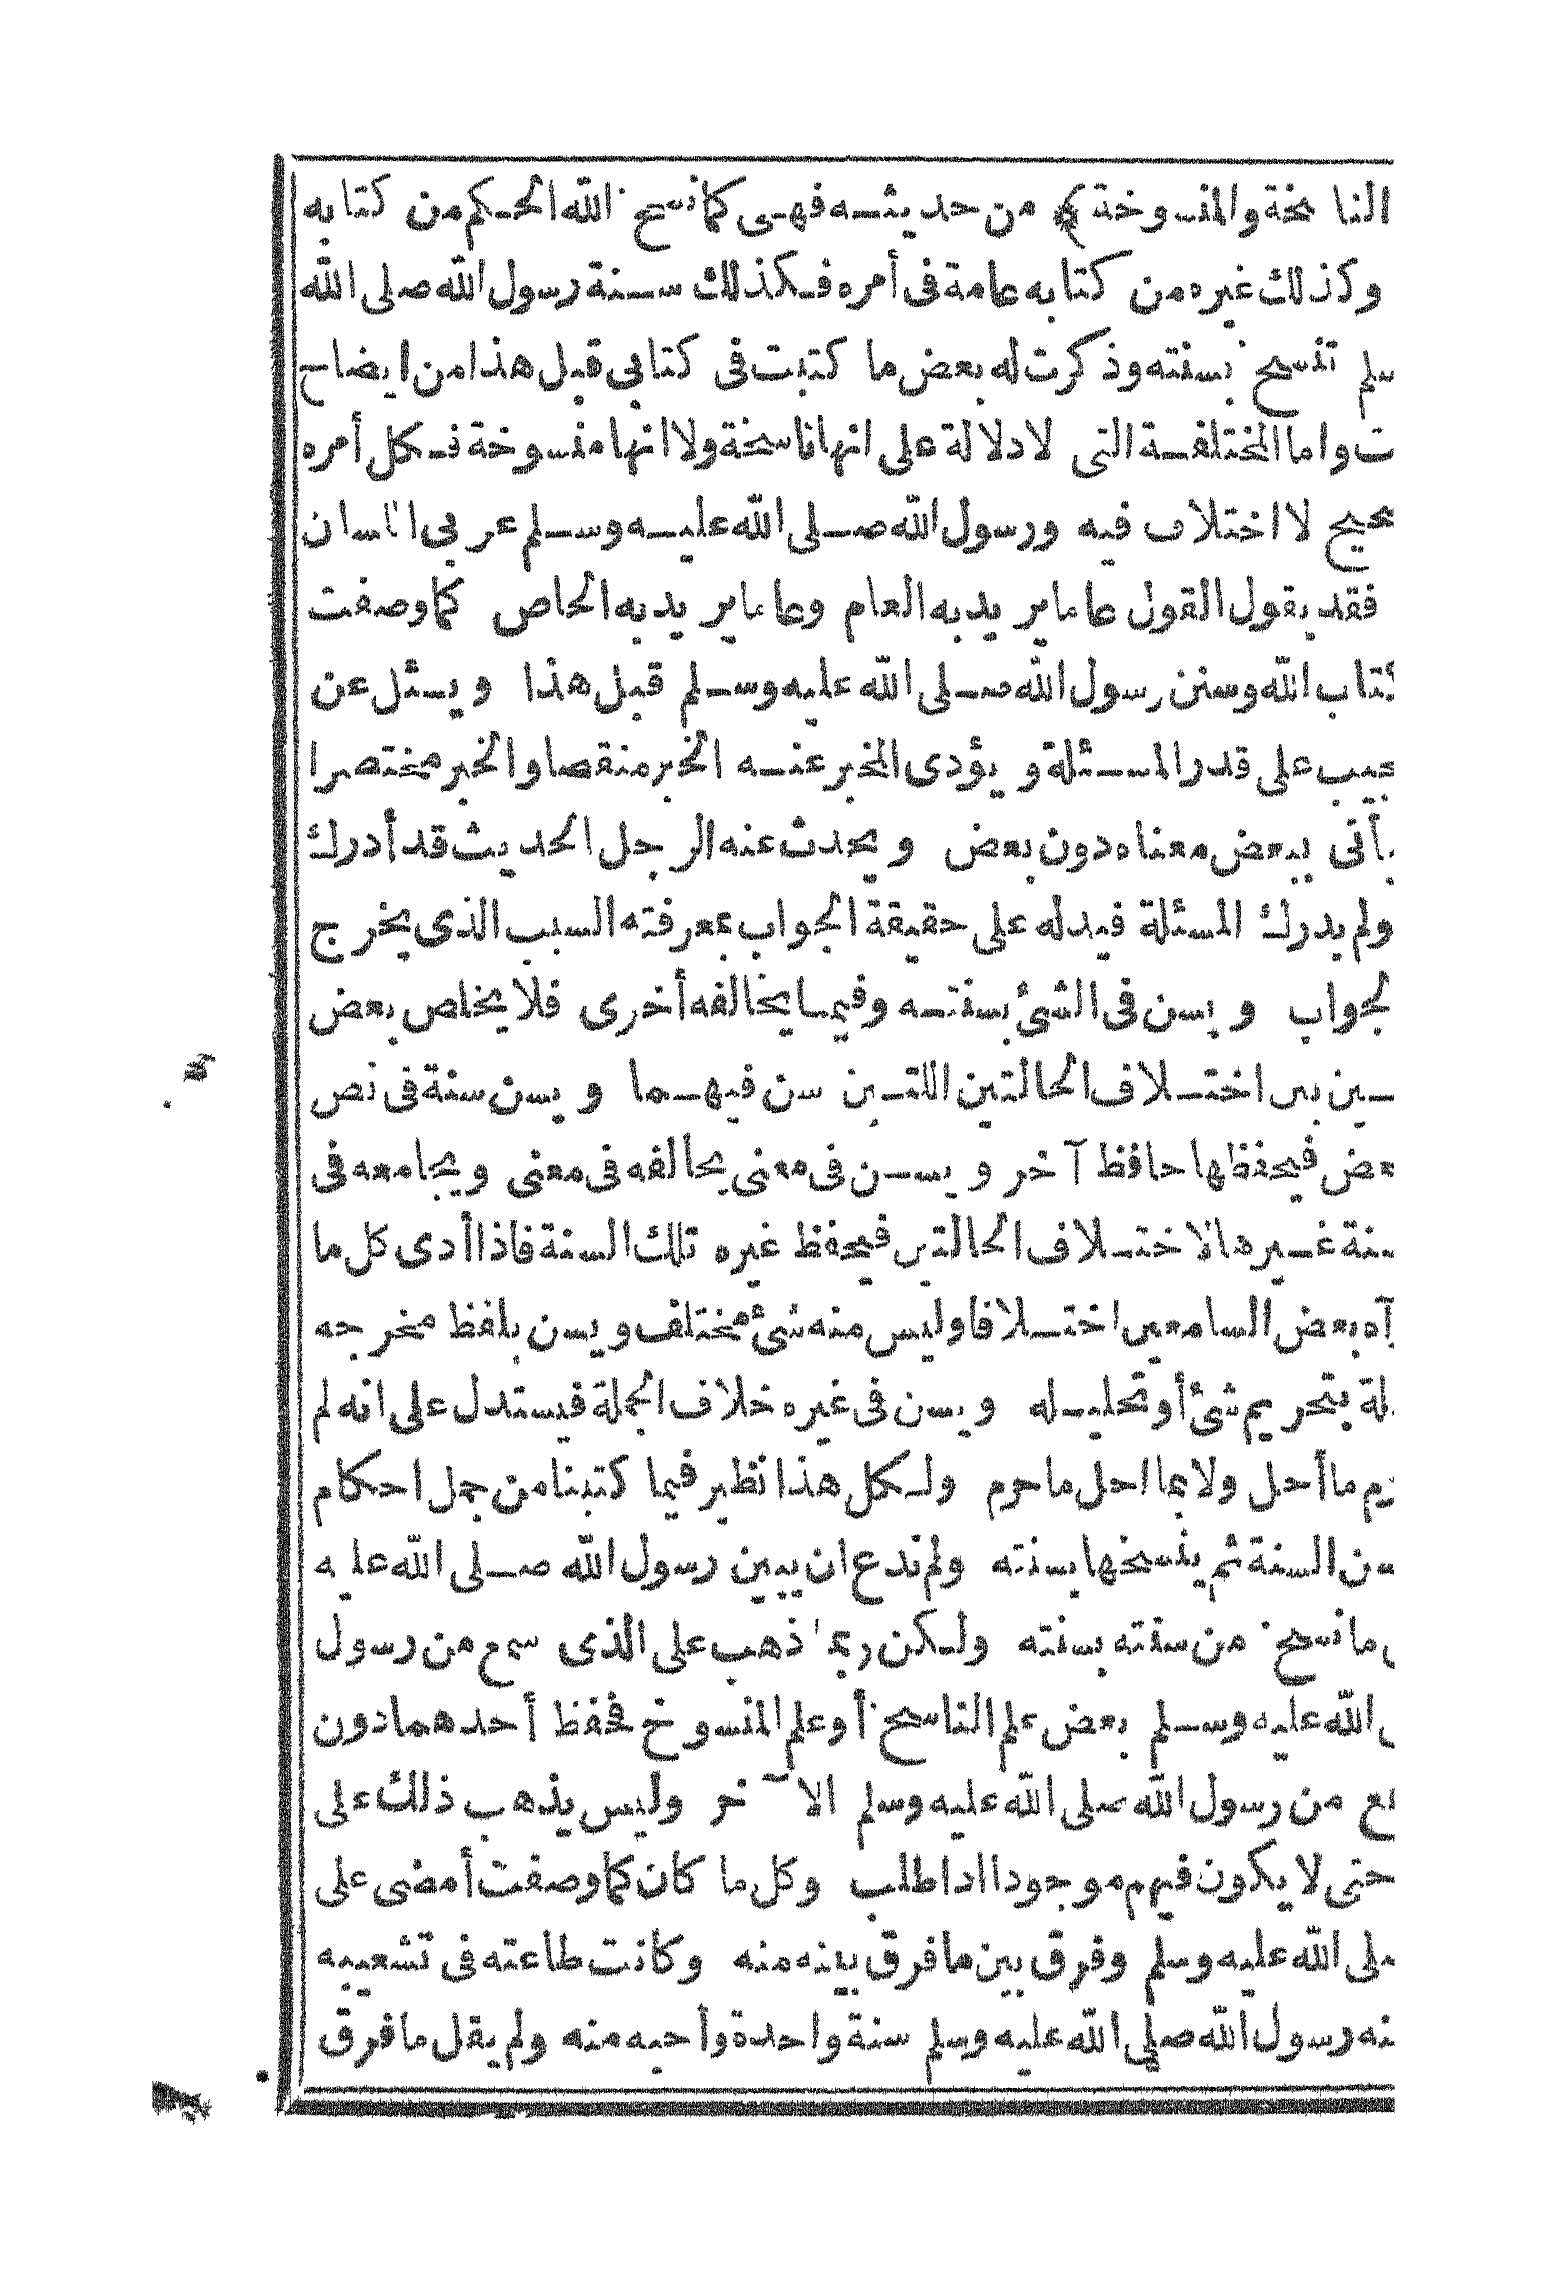 الناسخة والمنسوخة﴾ من حديثه فهى كمانسخ الله الحكم من كتابه
وكذلك غيره من كتابه عامة فى أمره فكذلك سنة رسول الله صلى الله
سلم تنسخ بسنته وذكرت له بعض ما كتبت فى كتابى قبل هذا من ايضاح
ت واما المختلفة التى لا دلالة على انها ناسخة ولا انها منسوخة فكل أمره
حيح لا اختلاف فيه ورسول الله صلى الله عليه وسلم عربى اللسان
فقد يقول القول عاما يريد به العام وعاما يريد به الخاص كما وصفت
كتاب الله وسنن رسول الله صلى الله عليه وسلم قبل هذا ويسئل عن
جيب على قدر المسئلة ويؤدى المخبر عنه الخبر منقصا والخبر مختصرا
يأتى ببعض معناه دون بعض ويحدث عنه الرجل الحديث قد أدرك
ولم يدرك المسئلة فيدله على حقيقة الجواب بمعرفته السبب الذى يخرج
لجواب ويسن فى الشئ بسنته وفيما يخالفه أخرى فلا يخلص بعض
ـين بين اختلاف الحالتين اللتين سن فيهما ويسن سنة فى نص
عض فيحفظها حافظ آخر ويسن فى معنى يخالفه فى معنى ويجامعه فى
سنة غيرها لاختلاف الحالتين فيحفظ غيره تلك السنة فاذا أدى كل ما
آه بعض السامعين اختلافا وليس منه شئ مختلف ويسن بلفظ مخرجه
لة بتحريم شئ أو تحليله ويسن فى غيره خلاف الجملة فيستدل على انه لم
رم ما أحل ولا بما احل ما حرم ولكل هذا نظير فيما كتبنا من جمل احكام
سن السنة ثم ينسخها بسنته ولم ندع ان يبين رسول الله صلى الله عليه
ما نسخ من سنته بسنته ولكن ربما ذهب على الذى سمع من رسول
ى الله عليه وسلم بعض علم الناسخ أو علم المنسوخ فحفظ أحدهما دون
مع من رسول الله صلى الله عليه وسلم الآخر وليس يذهب ذلك على
حتى لا يكون فيهم موجودا اذا طلب وكل ما كان كما وصفت أمضى على
صلى الله عليه وسلم وفرق بين ما فرق بينه منه وكانت طاعته فى تشعيبه
نه رسول الله صلى الله عليه وسلم سنة واحدة وأحبه منه ولم يقل ما فرق